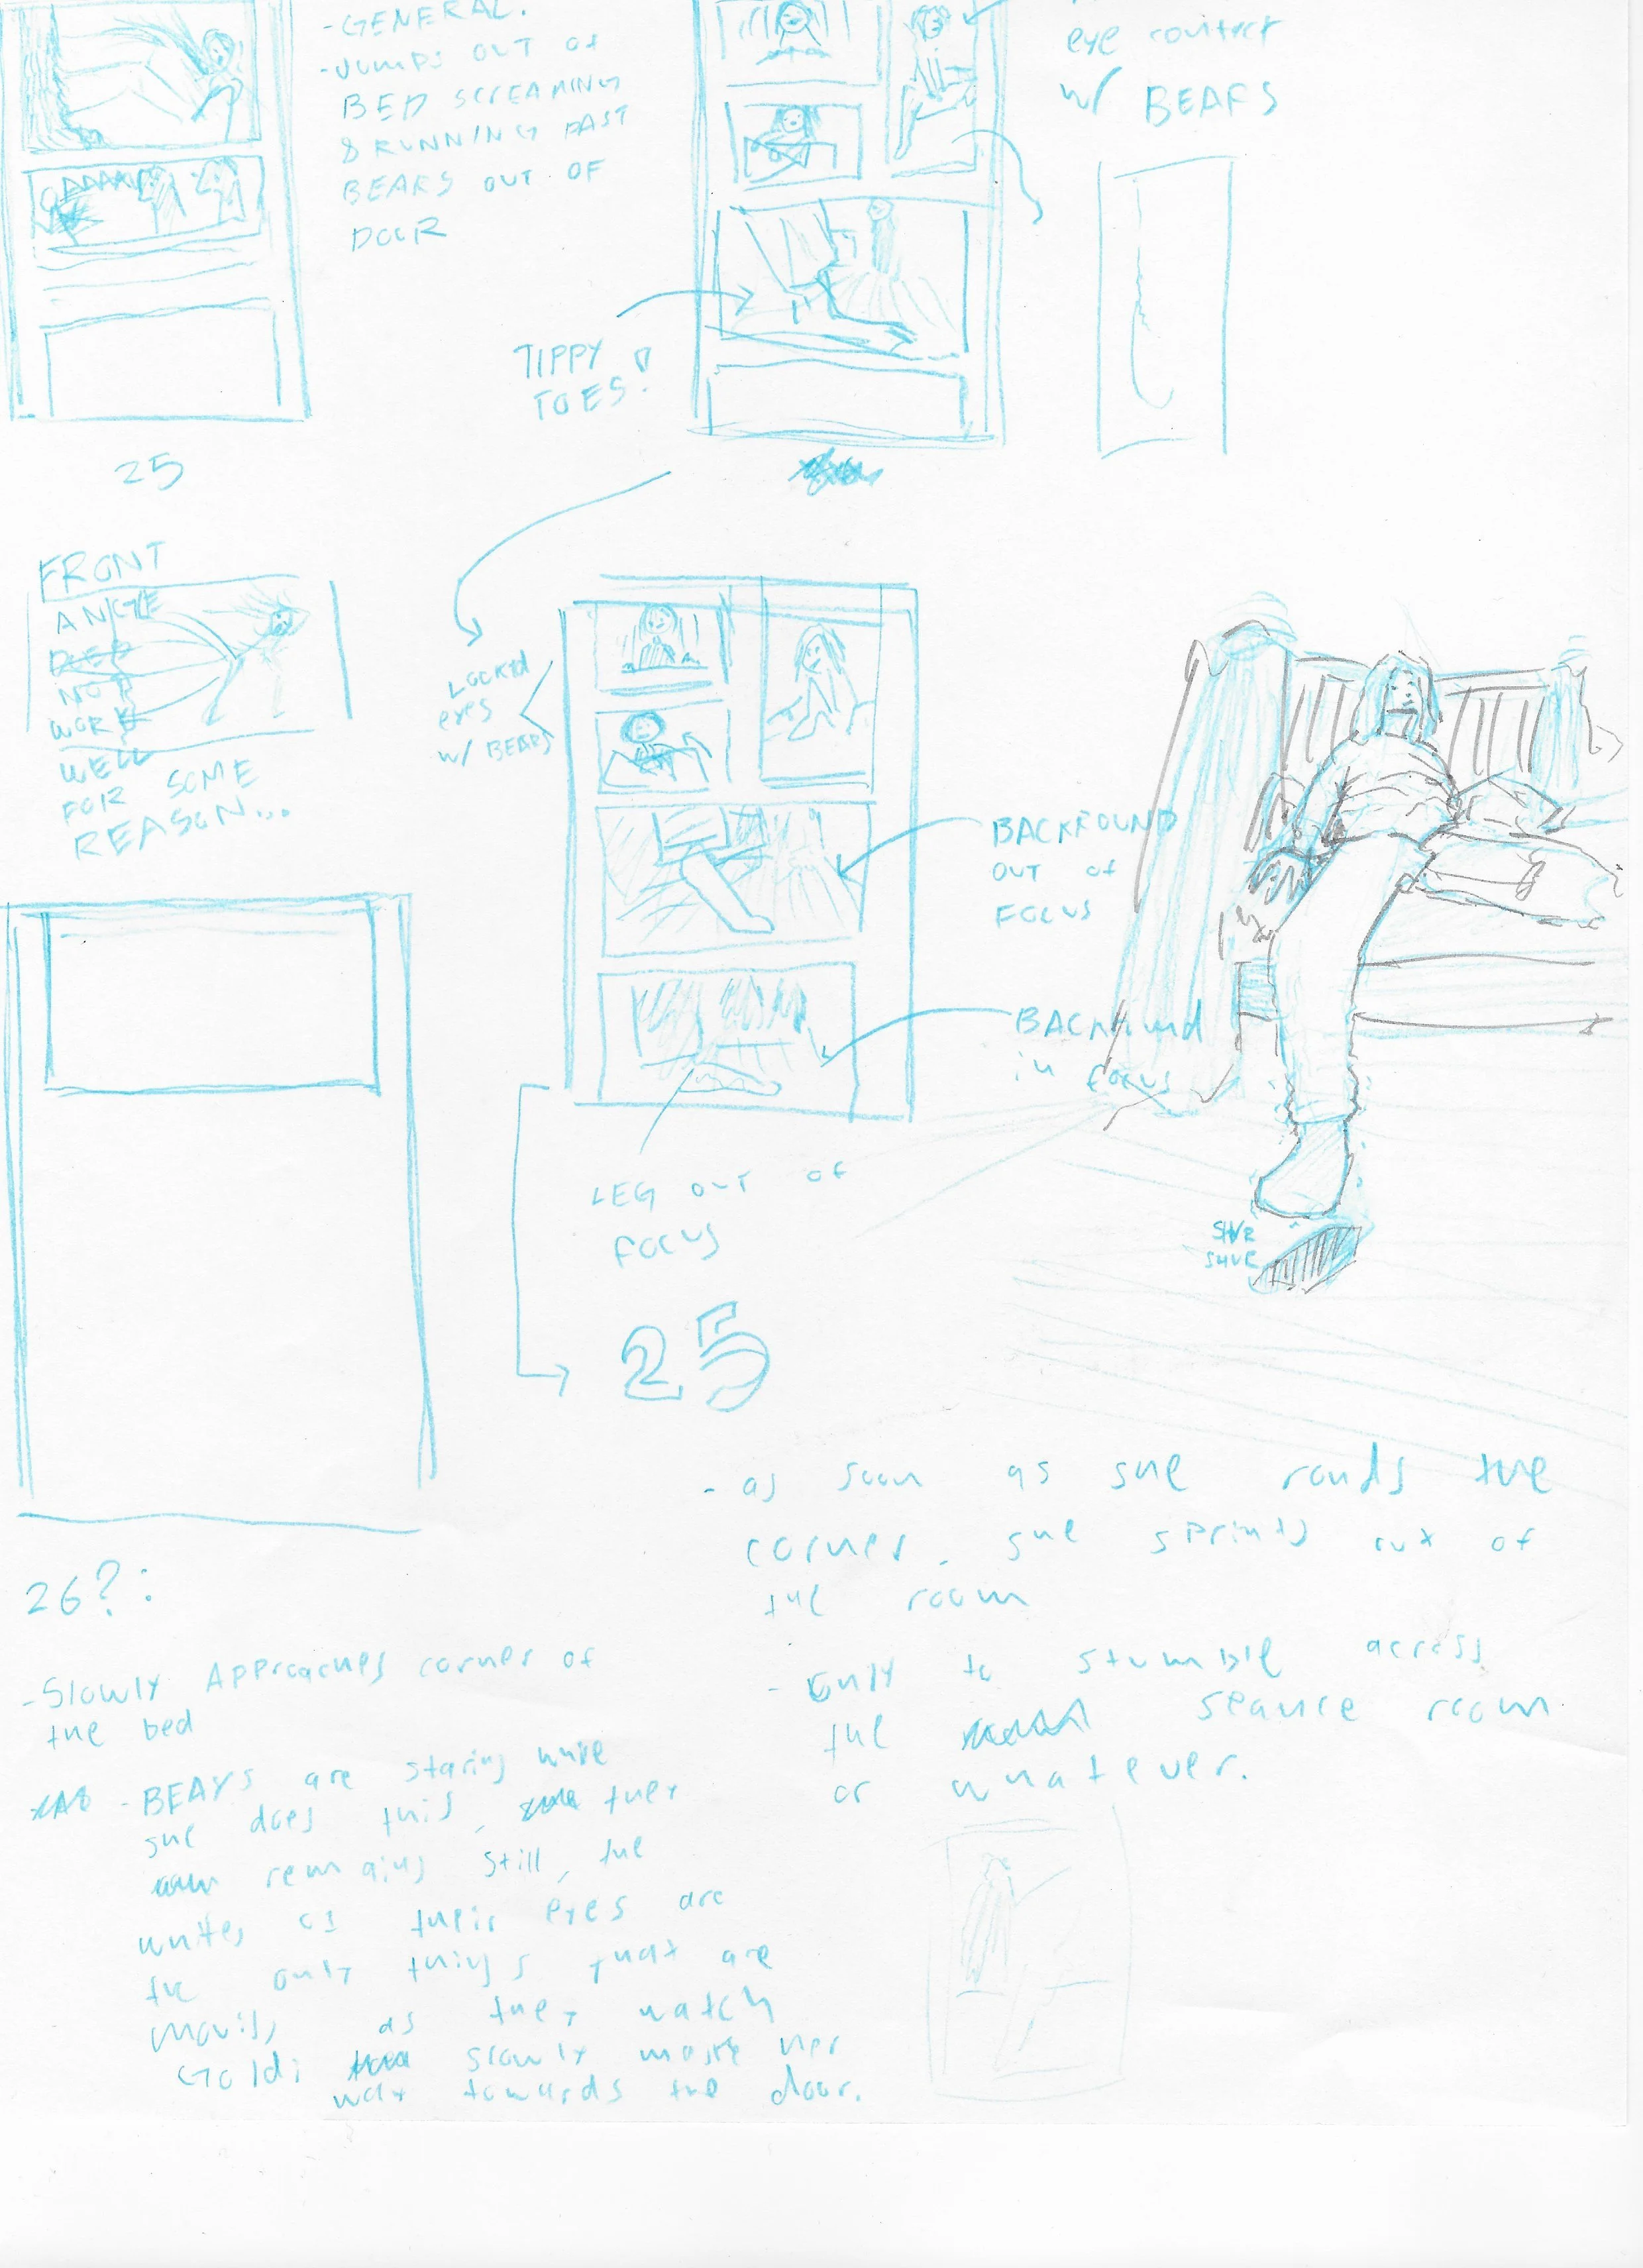 -GENERAL.
-JUMPS OUT OF
BED SCREAMING
& RUNNING PAST
BEARS OUT OF
DOOR
eye contact
w/ BEARS
TIPPY
TOES!
25
FRONT
ANGLE
DOES
NOT
WORK
WELL
FOR SOME
REASON...
LOCKED
eyes
w/ BEARS
BACKROUND
OUT OF
FOCUS
BACKROUND
in focus
LEG OUT OF
FOCUS
SHVR
SHVR
25
- as soon as she rounds the
corner, she sprints out of
the room
- only to stumble across
the seance room
or whatever.
26?:
-Slowly Approaches corner of
the bed
- BEARS are staring while
she does this, they
remaing still, the
whites of their eyes are
the only things that are
moving as they watch
Goldi slowly make her
way towards the door.